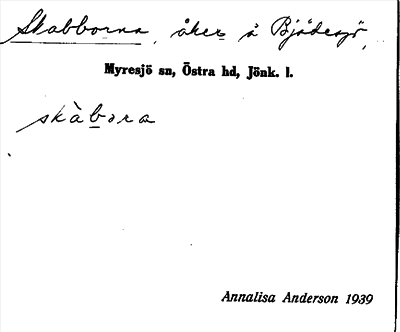 Skabborna, åker å Bjädesjö,
Myresjö sn, Östra hd, Jönk. l.
skàbɔra
Annalisa Anderson 1939